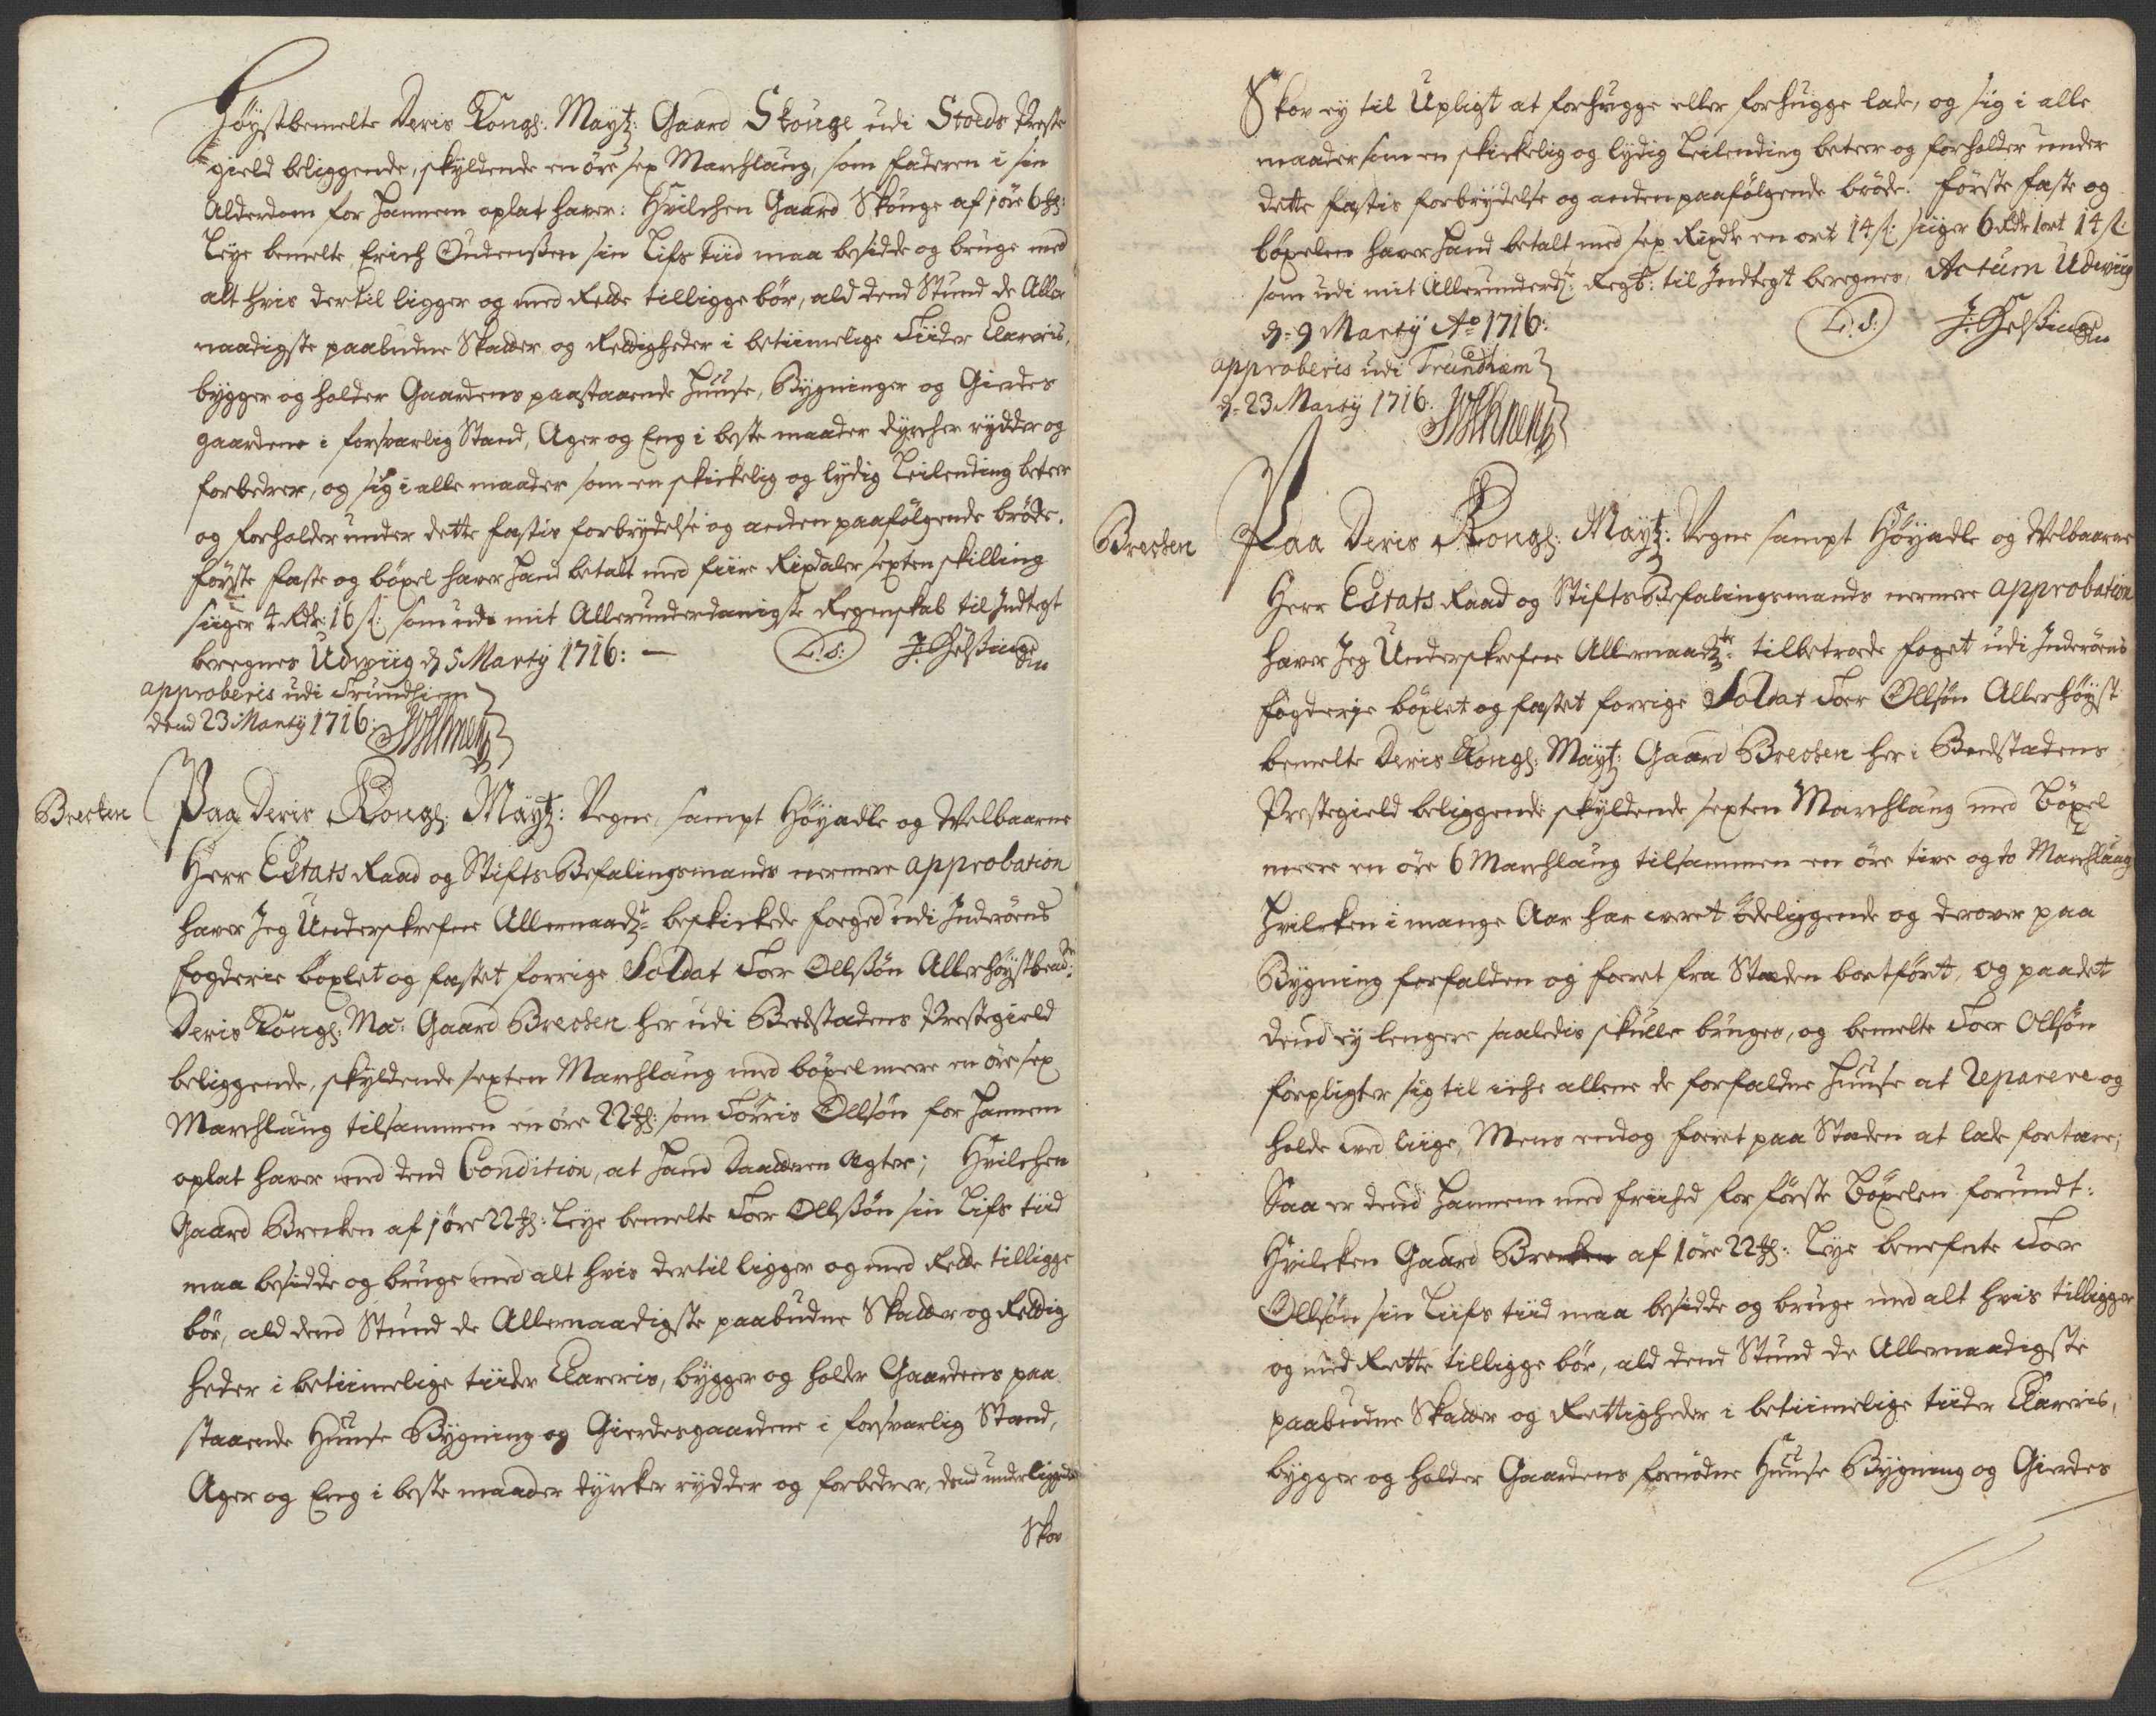 Höÿstbemelte Deris Kongl: Maytz: Gaard Skouge udi Stods Preste
gield beliggende, skyldende en öre sex Marchlaug, som faderen i sin
Alderdom for hannem oplat haver: Hvilchen Gaard Skouge af 1 öre 6 ℔:
Leÿe bemelte Erich Oudenssen sin Lifs Tiid maa besidde og bruge med
alt hvis dertil ligger og med Rette tilligge bör, ald dend Stund de Aller
naadigste paabudne Skatter og Rettigheder i betiimelige Tiider Clareris,
bygger og holder Gaardens paastaaende Huuse, Bygninger og Gierdes
gaardene i forsvarlig Stand, Ager og Eng i beste maader dyrcher rydder og
forbedrer, og sig i alle maader som en skickelig og lydig Leilending beteer
og forholder under dette festis forbrydelse og anden paafölgende bröde.
förste feste og böxel haver hand betalt med fiire Rixdaler sexten skilling
siiger 4 Rdr: 16 s: som udi mit Allerunderdanigste Regenskab til Indtegt
beregnes Udwiig d 5 Martÿ 1716: — L.S: J: Helssing
approberis udi Trundhiem
dend 23 Martÿ 1716:
Brecken
Paa Deris Kongl: Maytz: Vegne, sampt Höÿadle og Velbaarne
Herr Estats Raad og Stifts Befalingsmands nermere approbation
haver Jeg Underskrefne Allernaadt: beskickede foeged udi Inderöens
fogderie böxlet og festet forrige Soldat Toer Ollssön Allerhöÿstbem:te
Deris Kongl: Ma: Gaard Brecken her udi Beedstadens Prestegield
beliggende, skyldende sexten Marchlaug med böxel mere en öre sex
Marchlaug tilsammen en öre 22 ℔: som Törris Ollsön for hannem
oplat haver med dend Condition, at hand Daatteren Ægter; Hvilchen
Gaard Brecken af 1 öre 22 ℔: Leÿe bemelte Toer Ollssön sin Lifs tiid
maa besidde og bruge med alt hvis dertil ligger og med Rette tilligge
bör, ald dend Stund de Allernaadigste paabudne Skatter og Rettig
heder i betiimelige tiider Clareris, bygger og holder Gaardens paa
staaende Huuse Bygning og Gierdesgaardene i forsvarlig Stand,
Ager og Eng i beste maader dyrcker rydder og forbedrer, dend underliggende
Skov
Skov eÿ til Upligt at forhugge eller forhugge lade, og sig i alle
maader som en skickelig og lydig Leilending beteer og forholder under
dette festis forbrydelse og anden paafölgende bröde. förste feste og
böxelen haver hand betalt med sex Rixdr en ort 14 s: siiger 6 Rdr 1 ort 14 s:
som udi mit Allerunderd: Regsk: til Indtegt beregnes, Actum Udwiig
d: 9 Martÿ Ao 1716: L.S: J: Helssing
approberis udi Trundhæm
d: 23 Martÿ 1716:
Brecken
Paa Deris Kongl: Maytz: Vegne sampt Höÿadle og Velbaarne
Herr Estats Raad og Stifts Befalingsmands nermere approbation
haver Jeg Underskrefne Allernaadt: tilbetroede foget udi Inderöens
fogderje böxlet og festet forrige Soldat Toer Ollsön Allerhöÿst
bemelte Deris Kongl: Maytz: Gaard Brecken her i Beedstadens
Prestegield beliggende skyldende sexten Marchlaug med böxel
mere en öre 6 Marchlaug tilsammen en öre tive og to Marchlaug
Hvilcken i mange Aar har veret ödeliggende og derover paa
Bygning forfalden og foeret fra Staden bortfört, og paadet
dend eÿ lengere saaledis skulle bruges, og bemelte Toer Ollsön
forpligter sig til iche allene de forfaldne Huuse at Reparere og
holde ved liige, Mens endog foeret paa Staden at lade fortære;
Saa er dend hannem med friihed for förste böxelen forundt:
Hvilcken Gaard Brecken af 1 öre 22 ℔: Leÿe benefnte Toer
Ollsön sin Liifs tiid maa besidde og bruge med alt hvis tilligger
og med Rette tilligge bör, ald dend Stund de Allernaadigste
paabudne Skatter og Rettigheder i betiimelige tiider Clareris,
bygger og holder Gaardens fornödne Huuse Bygning og Gierdes